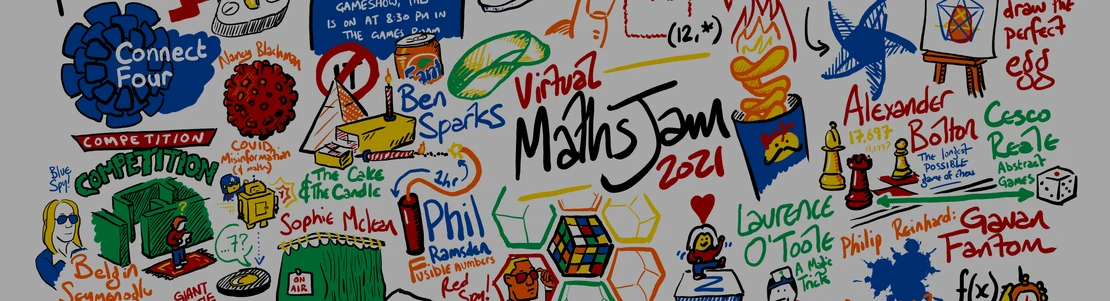 GAMESHOW, THE
IS ON AT 8:30 PM IN
THE GAMES ROOM
Connect
Four
Nancy Blachman
COVID
Misinformation
(& maths)
COMPETITION
COMPETITION
Blue
Spy!
?
...7?
Belgin
Seymenoglu
GIANT
π
Fanta
Ben
Sparks
The Cake
& The Candle
2hr
Sophie Mclean
ON
AIR
Phil
Ramsden
Fusible numbers
Red
Spy!
(12,*)
Virtual
MathsJam
2021
draw the
perfect
egg
Alexander
Bolton
17,697
The longest
POSSIBLE
game of chess
Cesco
Reale
Abstract
Games
Laurence
O'Toole
A Magic
Trick
Philip Reinhard:
Gavan
Fantom
f(x)